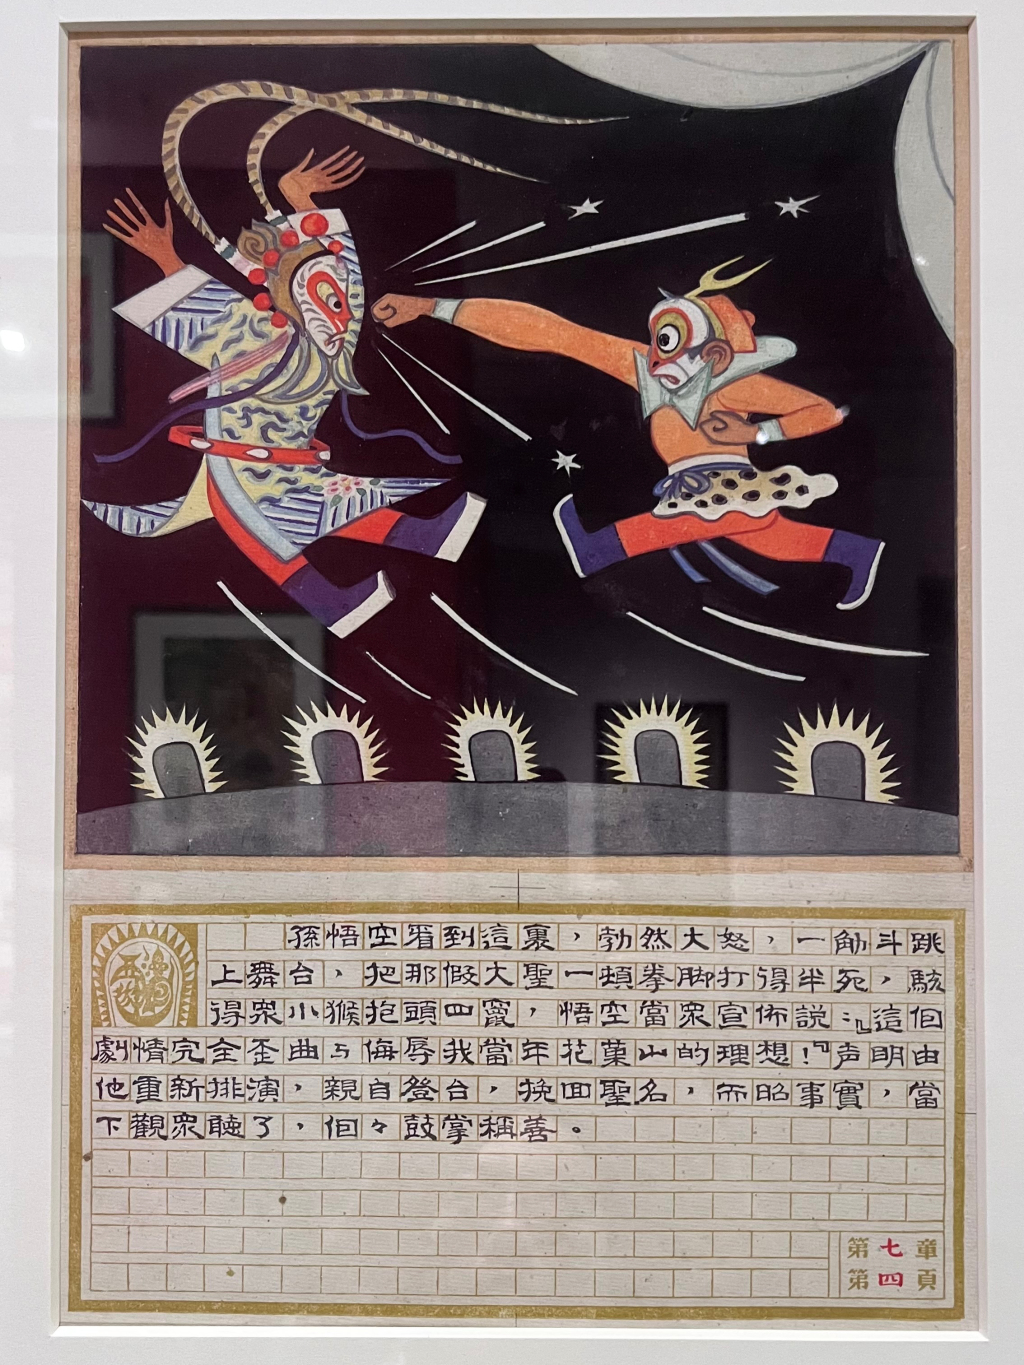 孫悟空看到這裏，勃然大怒，一觔斗跳
上舞台，把那假大聖一頓拳脚打得半死，駭
得衆小猴抱頭四竄，悟空當衆宣佈説：『這個
劇情完全歪曲与侮辱我當年花菓山的理想！』声明由
他重新排演，親自登台，挽回聖名，而昭事實，當
下觀衆聽了，個々鼓掌稱善。
第七章
第四頁